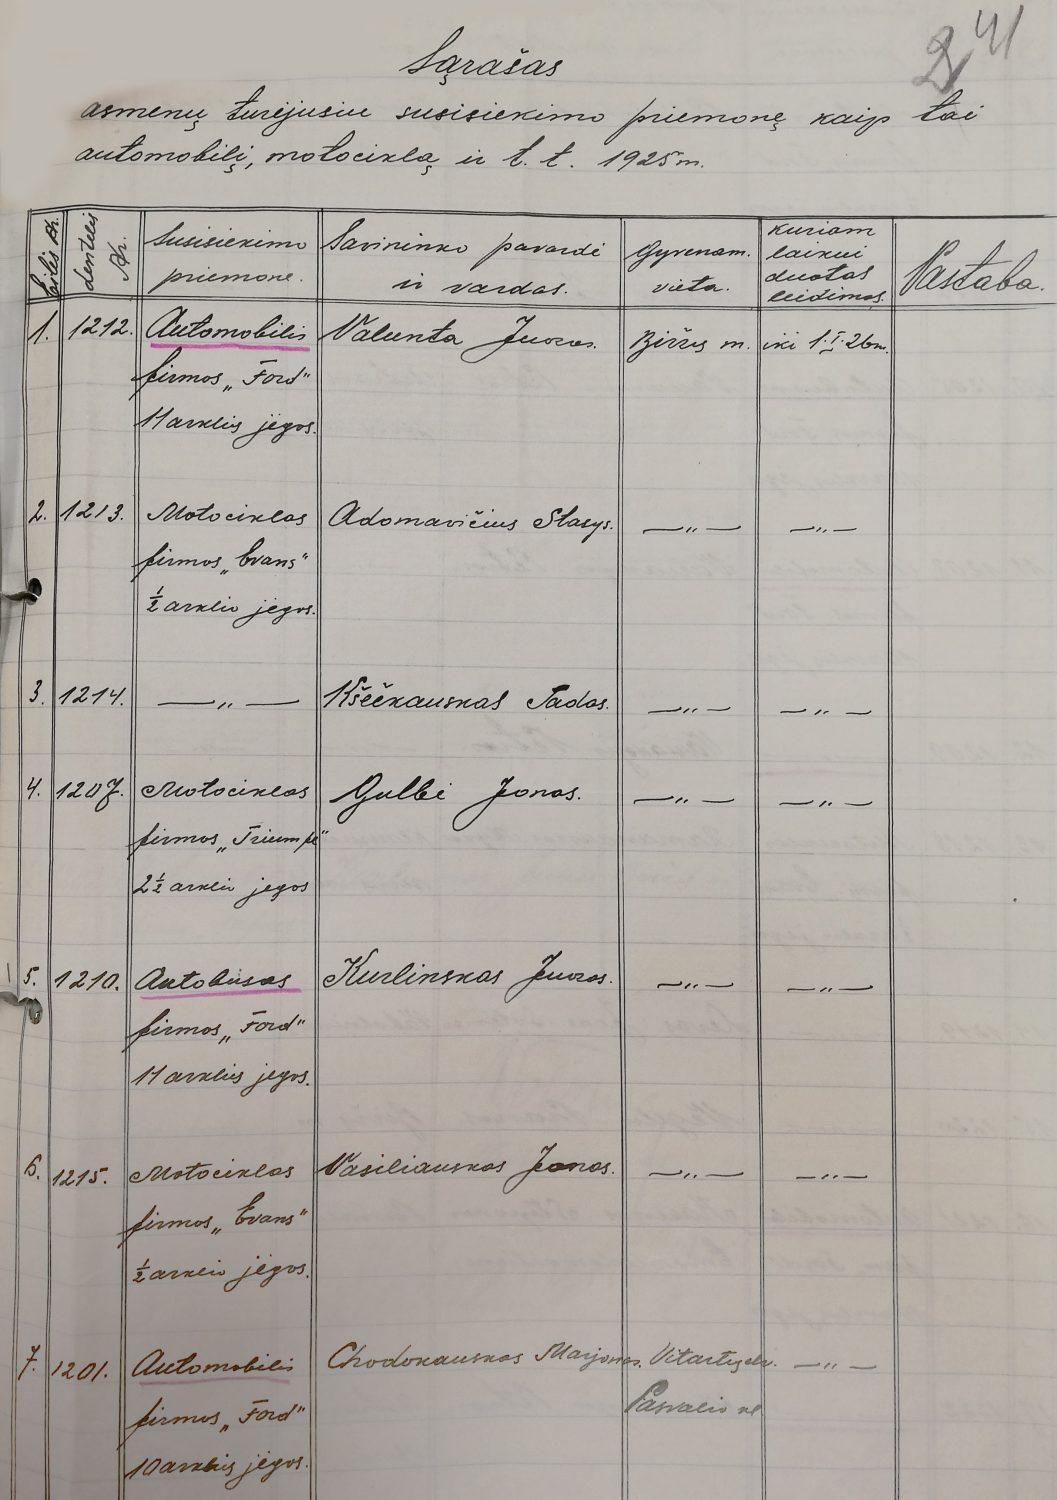 241
Sąrašas
asmenų turėjusiu susisiekimo priemonę kaip tai
automobilį, motociklą ir t. t. 1925 m.
Eilės Nr.
Lentelės Nr.
Susisiekimo
priemonė.
Savininko pavardė
ir vardas.
Gyvenam.
vieta.
Kuriam
laikui
duotas
leidimas.
Pastaba.
1. 1212. Automobilis Valunta Juozas. Biržų m. iki 1.I.26m.
firmos „Ford"
11 arklių jėgos.
2. 1213. Motociklas Adomavičius Stasys. —„— —„—
firmos „Evans"
½ arklio jėgos.
3. 1214. —„— Kšečkauskas Tadas. —„— —„—
4. 1207. Motociklas Gulbė Jonas. —„— —„—
firmos „Triumpf"
2½ arklio jėgos
5. 1210. Autobusas Kurlinskas Juozas. —„— —„—
firmos „Ford"
11 arklių jėgos.
6. 1215. Motociklas Vasiliauskas Jonas. —„— —„—
firmos „Evans"
½ arklio jėgos.
7. 1201. Automobilis Chodokauskas Marjonas. —„—
firmos „Ford" Pasvalio vl.
10 arklių jėgos.